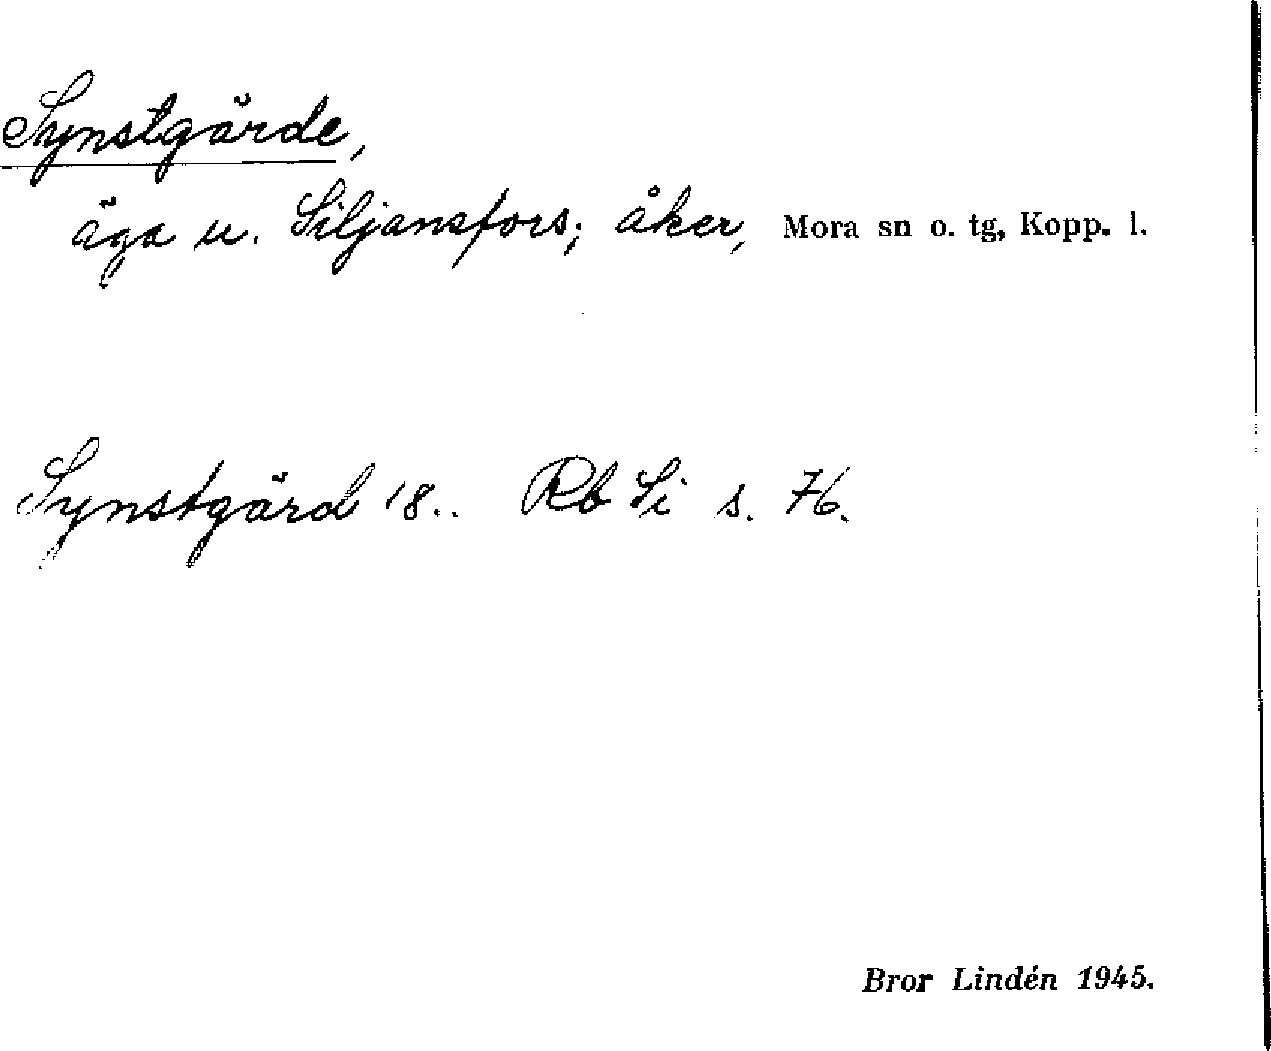 Synstgärde,
äga u. Siljansfors; åker, Mora sn o. tg, Kopp. l.
Synstgärd 18.. Rb Si s. 76.
Bror Lindén 1945.